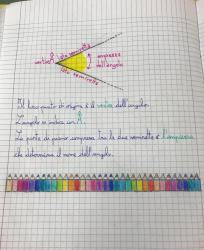 lato semiretta
vertice A
ampiezza
dell'angolo
lato semiretta
Il loro punto di origine è il vertice dell'angolo.
L'angolo si indica con Â.
La parte di piano compresa tra le due semirette è l'ampiezza
che determina il nome dell'angolo.